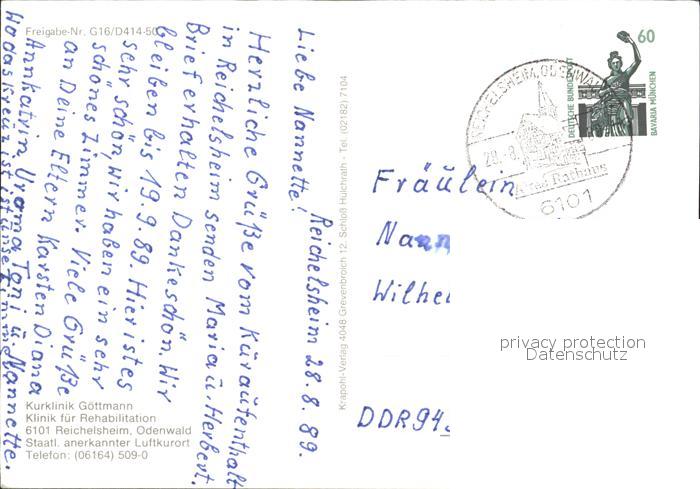 Freigabe-Nr. G16/D414-50
Reichelsheim 28.8.89.
Liebe Nannette!
Herzliche Grüße vom Kuraufenthalt
in Reichelsheim senden Maria u. Herbert.
Brief erhalten Dankeschön. Wir
bleiben bis 19.9.89. Hier ist es
sehr schön, wir haben ein sehr
schönes Zimmer. Viele Grüße
an Deine Eltern Karsten Diana
Annkatrin, Uroma Toni u. Nannette.
Wo das Kreuz ist ist unser Zimmer
Kurklinik Göttmann
Klinik für Rehabilitation
6101 Reichelsheim, Odenwald
Staatl. anerkannter Luftkurort
Telefon: (06164) 509-0
Krapohl-Verlag 4048 Grevenbroich 12, Schloß Hülchrath - Tel. (02182) 7104
60
DEUTSCHE BUNDESPOST
BAVARIA MÜNCHEN
REICHELSHEIM, ODENWALD
28.-8.
Rathaus
6101
Fräulein
Nann
Wilhel
DDR 94
privacy protection
Datenschutz